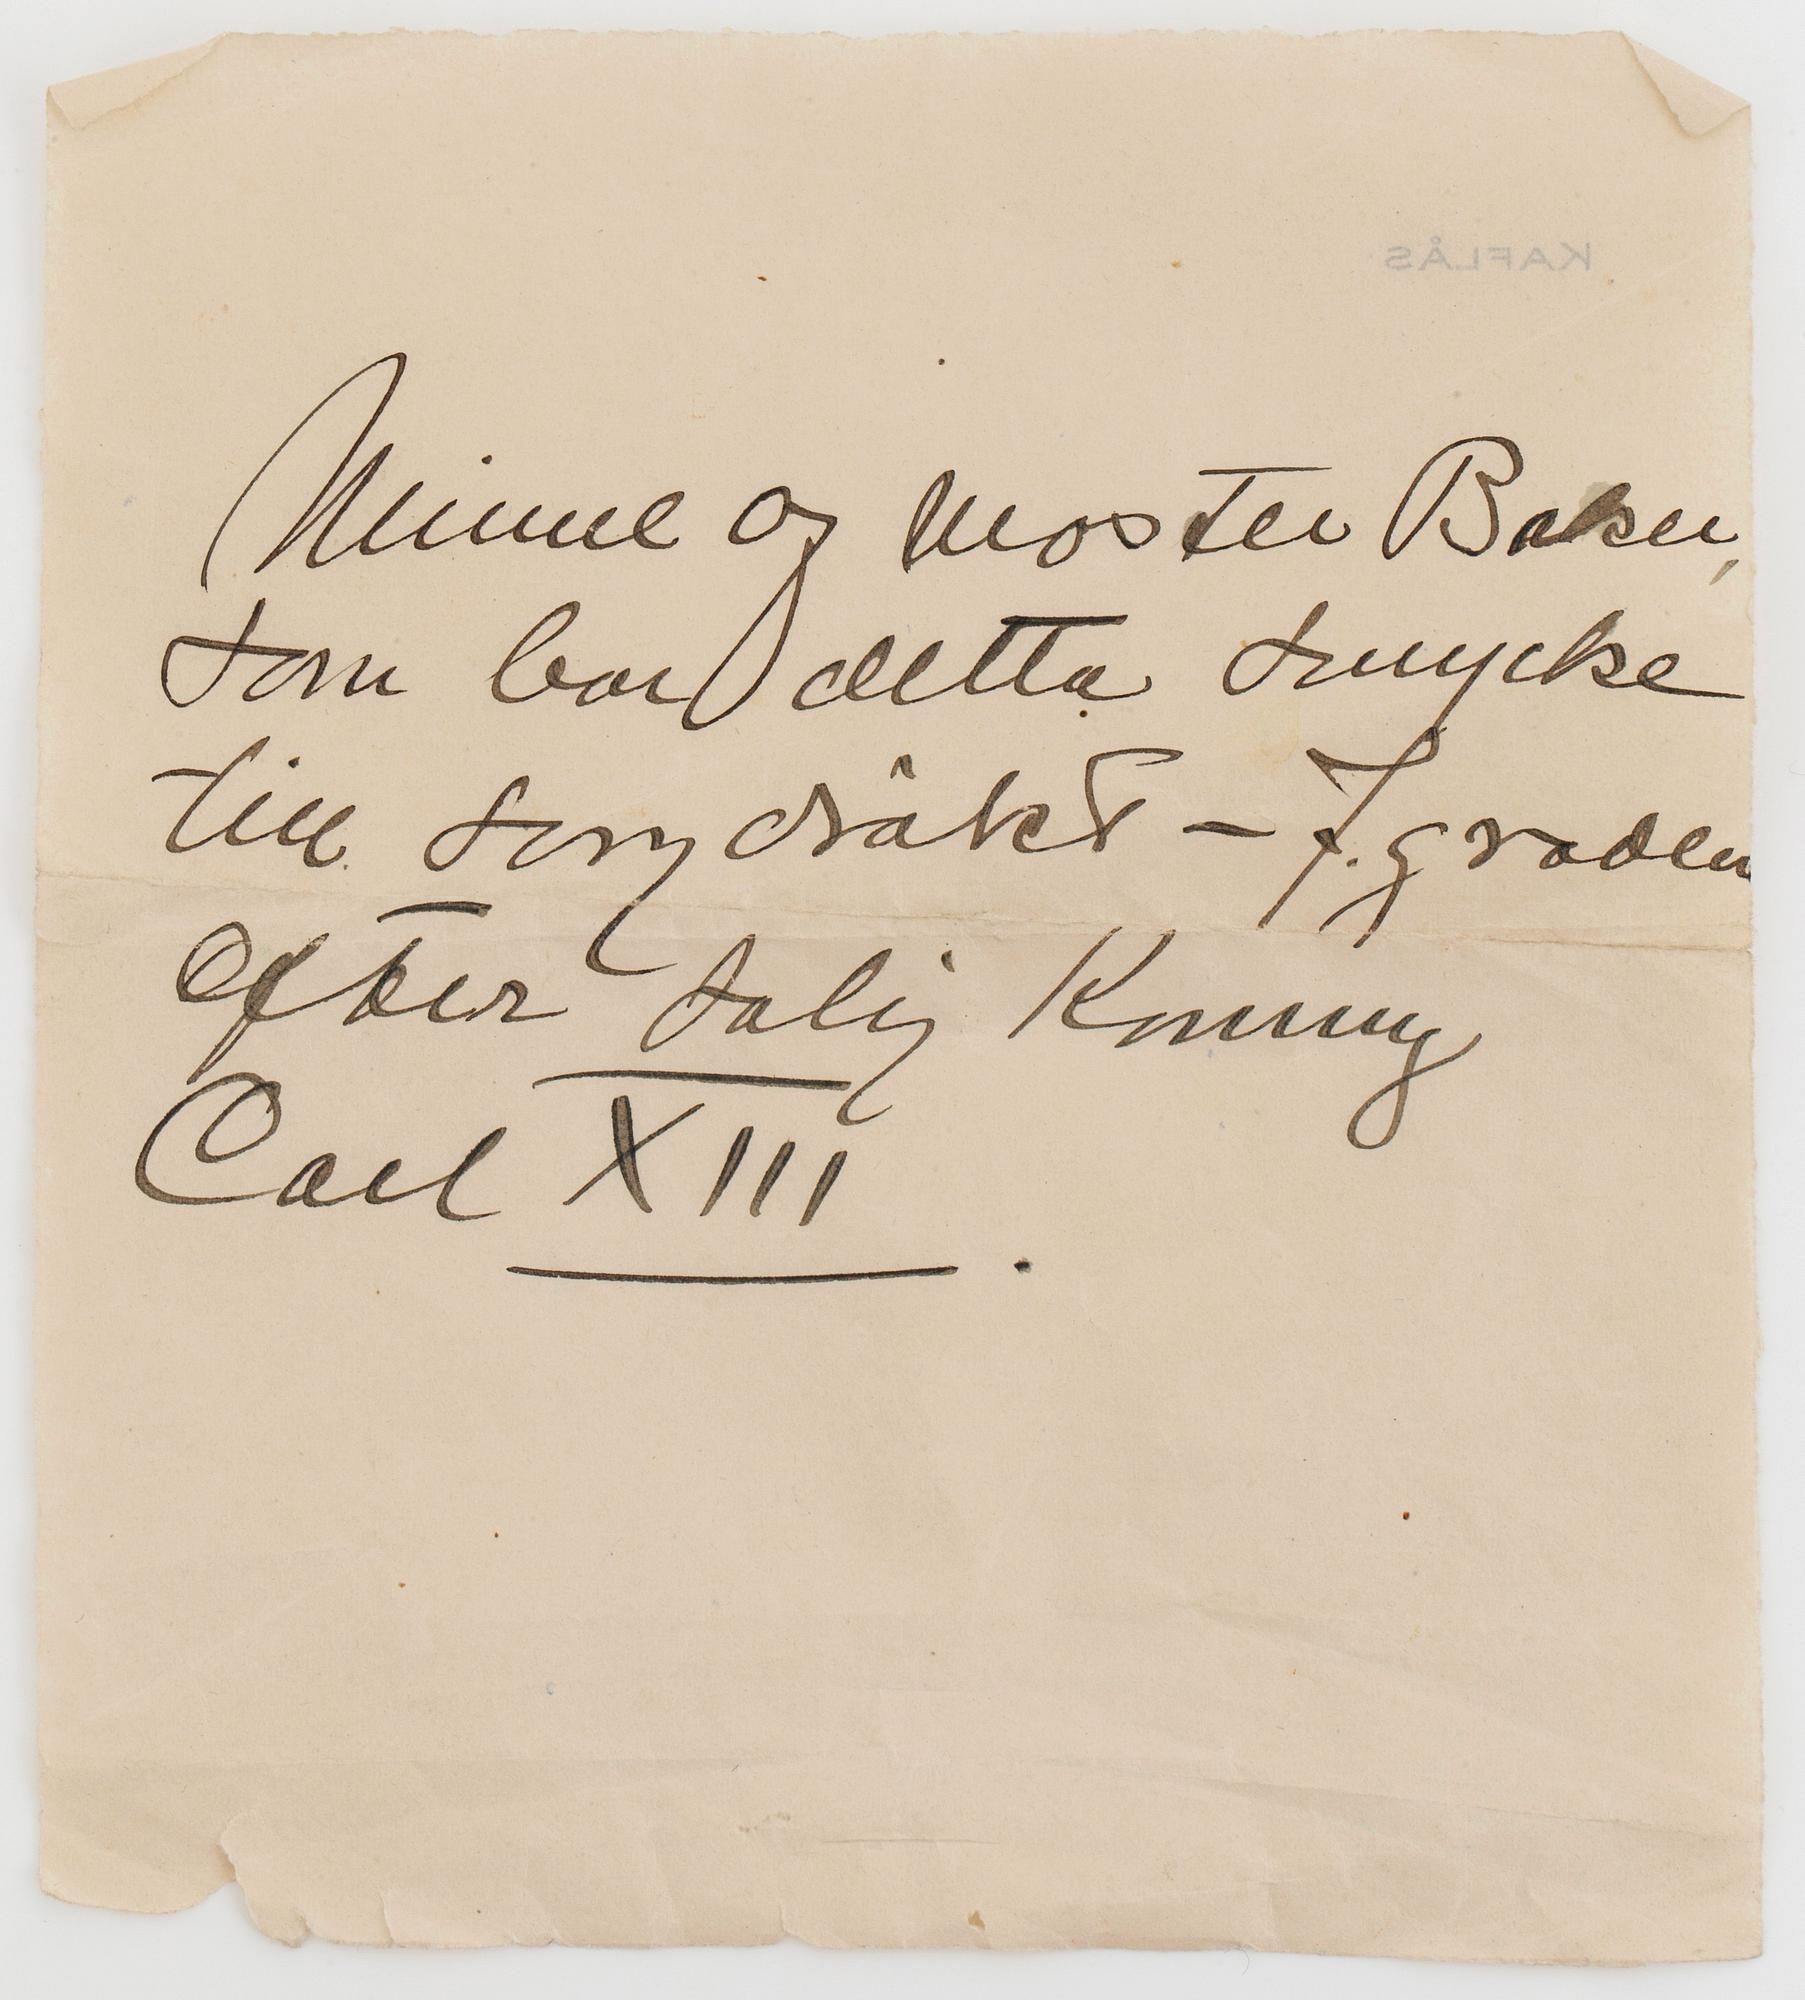 KAFLÅS
Minne af Moster Baker,
som bar detta smycke
till sorgdräkt – 7. graden
efter salig Konung
Carl XIII.